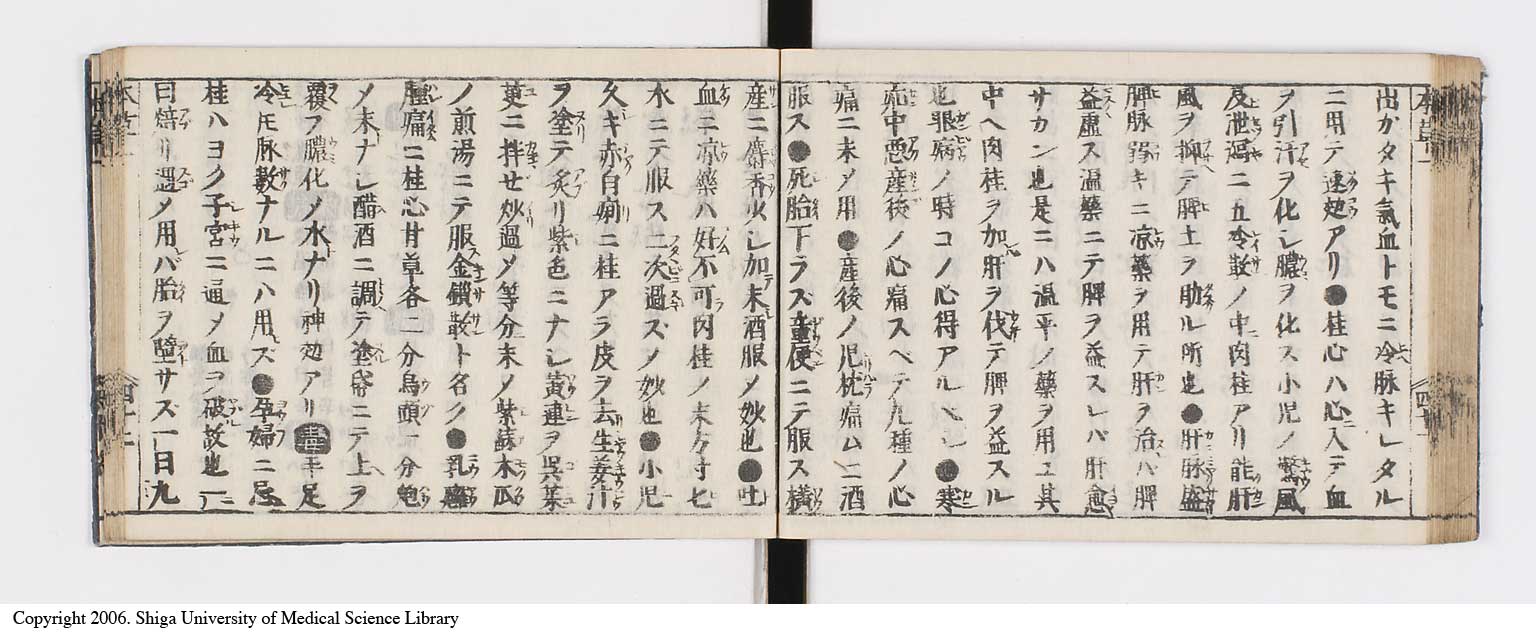 出カタキ氣血トモニ冷脉キレタル
ニ用テ速効アリ●桂心ハ心入テ血
ヲ引汗ヲ化シ膿ヲ化ス小児ノ驚風
及泄瀉ニ五冷散ノ中肉桂アリ能肝
風ヲ抑テ脾土ヲ助ル所也●肝脉盛
脾脉弱キニ凉藥ヲ用テ肝ヲ治ハ脾
益虚ス温藥ニテ脾ヲ益スレバ肝愈
サカン也是ニハ温平ノ藥ヲ用ユ其
中ヘ肉桂ヲ加肝ヲ伐テ脾ヲ益スル
也眼病ノ時コノ心得アルヘシ●寒
疝中悪産後ノ心痛スベテ九種ノ心
痛ニ末メ用●産後ノ児枕痛ムニ酒
服ス●死胎下ラズ童便ニテ服ス横
産ニ麝香少シ加末酒服メ妙也●吐
血ニ凉藥ハ好不可肉桂ノ末方寸七
水ニテ服ス二次過ズメ妙也●小児
久キ赤白痢ニ桂アラ皮ヲ去生姜汁
ヲ塗テ炙リ紫色ニナシ黄連ヲ呉茱
萸ニ拌セ炒過メ等分末メ紫蘇木瓜
ノ煎湯ニテ服金鎖散ト名ク●乳癰
腫痛ニ桂心甘草各二分烏頭一分炮
メ末ナシ醋酒ニ調テ塗帋ニテ上ヲ
覆フ膿化メ水ナリ神効アリ 手足
冷ヱ脉數ナルニハ用ズ●孕婦ニ忌
桂ハヨク子宮ニ通メ血ヲ破故也一
曰焙リ過メ用バ胎ヲ墮サス一日九